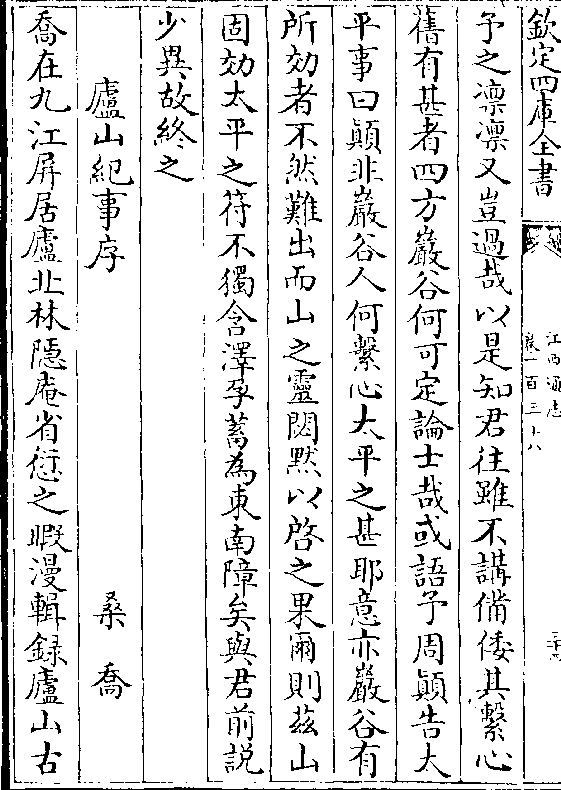 欽定四庫全書
江西通志
卷一百三十八
予之凛凛又豈過哉以是知君往雖不講備倭其繫心
舊有甚者四方巖谷何可定論士哉或語予周顛告太
平事曰顛非巖谷人何繫心太平之甚耶意亦巖谷有
所効者不然難出而山之靈閟黙以啓之果爾則兹山
固効太平之符不獨含澤孕蓄為東南障矣與君前説
少異故終之
廬山紀事序 桑喬
喬在九江屏居廬北林隱庵省愆之暇漫輯録廬山古